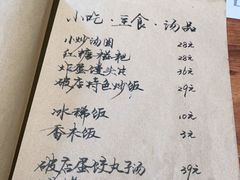 小吃·豆食·汤品
小炒汤圆 28元
红糖糍粑 28元
炸蛋馒头片 36元
破店特色炒饭 29元
冰稀饭 10元
香米饭 3元
破店蛋饺丸子汤 39元